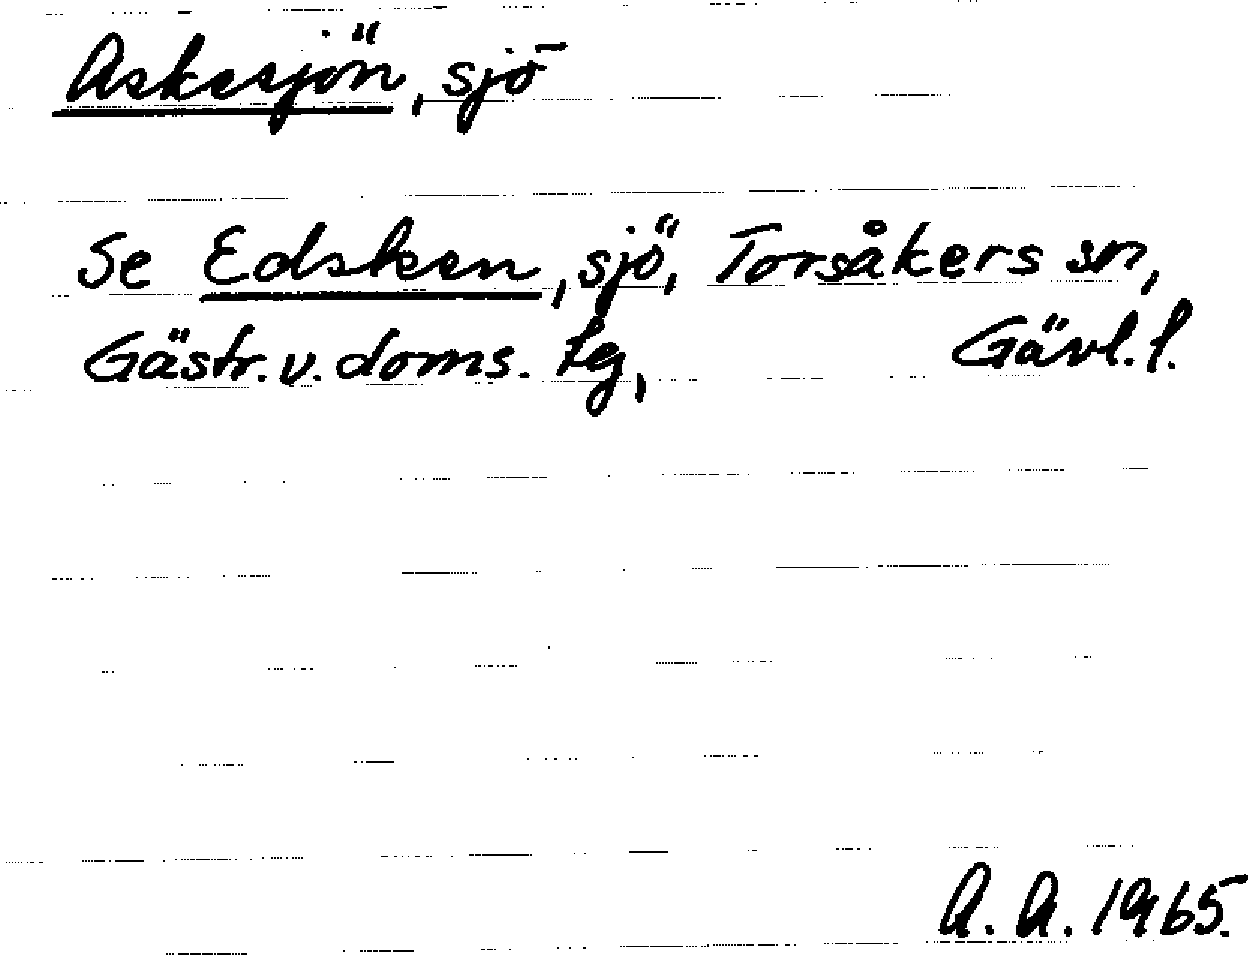 Askesjön, sjö
Se Edsken, sjö, Torsåkers sn,
Gästr. v. doms. tg, Gävl. l.
A. A. 1965.